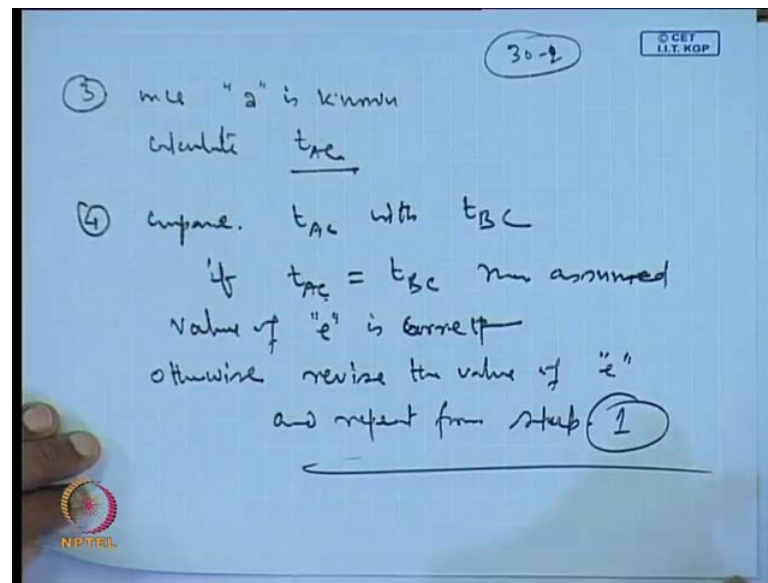 30-2
© CET
I.I.T. KGP
③ once "a" is known
calculate t_AC
④ compare. t_AC with t_BC
if t_AC = t_BC then assumed
value of "e" is correct
otherwise revise the value of "e"
and repeat from step. ①
NPTEL